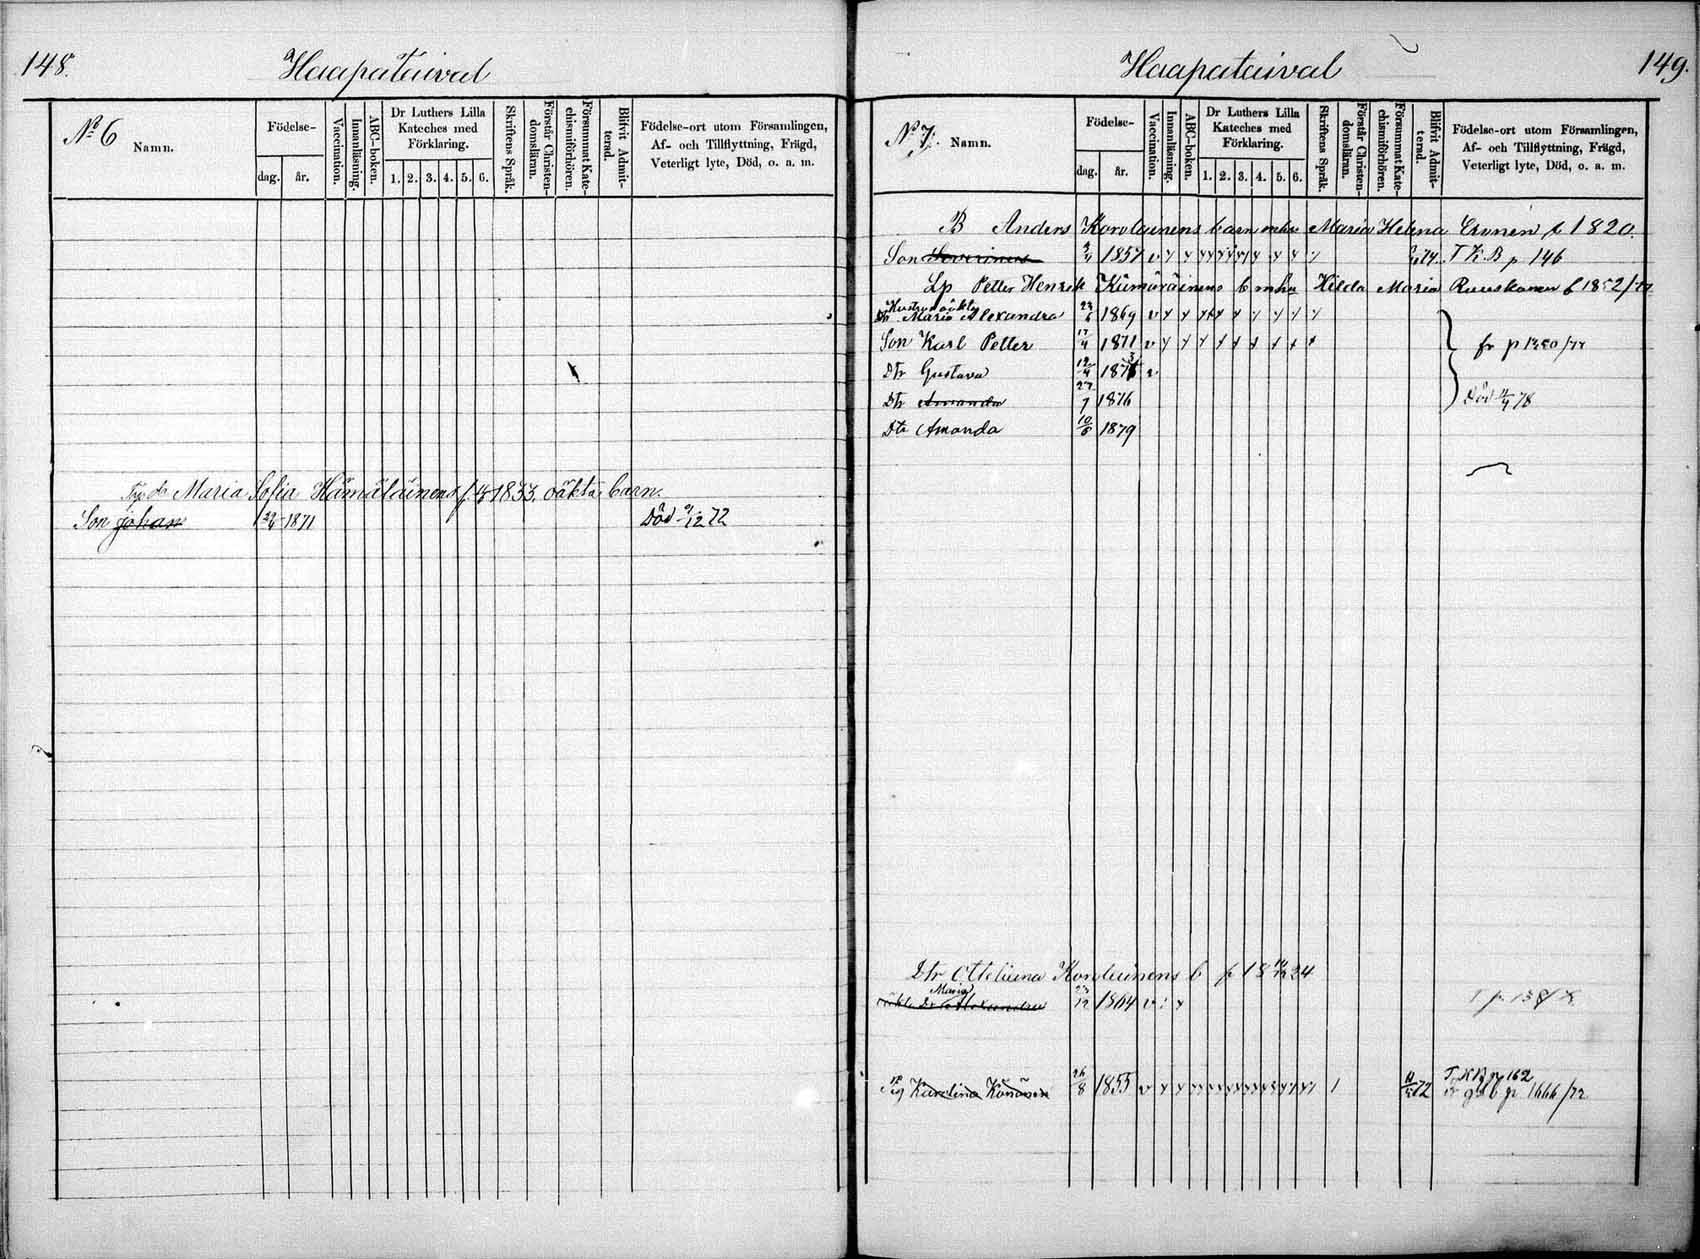 148.
Haapataival
No 6 Namn.
Födelse-
dag. år.
Vaccination.
Innanläsning.
ABC-boken.
Dr Luthers Lilla Kateches med Förklaring.
1. 2. 3. 4. 5. 6.
Skriftens Språk.
Förstår Christendomsläran.
Försummat Katechismiförhören.
Blifvit Admitterad.
Födelse-ort utom Församlingen,
Af- och Tillflyttning, Frägd,
Veterligt lyte, Död, o. a. m.
Maria Sofia Hämäläinens f. 1853 oäkta barn.
Son Johan 1871 Död 9/12 72
Haapataival
149.
No 7. Namn.
Födelse-
dag. år.
Vaccination.
Innanläsning.
ABC-boken.
Dr Luthers Lilla Kateches med Förklaring.
1. 2. 3. 4. 5. 6.
Skriftens Språk.
Förstår Christendomsläran.
Försummat Katechismiförhören.
Blifvit Admitterad.
Födelse-ort utom Församlingen,
Af- och Tillflyttning, Frägd,
Veterligt lyte, Död, o. a. m.
B Anders Korolainens barn mhu Maria Helena f 1820.
Son Severinus 1857 74 T K B p 146
Lp Petter Henrik b mhu Hilda Maria Ruuskanen f 1852
Hustrus oäkta
Dr Maria Alexandra 23/6 1869
Son Karl Petter 17/4 1871 fr p
Dtr Gustava 12/4 187
Dtr Amanda 27/7 1876 Död 78
Dtr Amanda 10/6 1879
Dtr Ottiliana Korolainens b f 18 24
oäkta Dr Maria Alexandra 23/12 1864
Pig Karolina Könönen 26/8 1855 72 T. K B p 162
p 1666/72